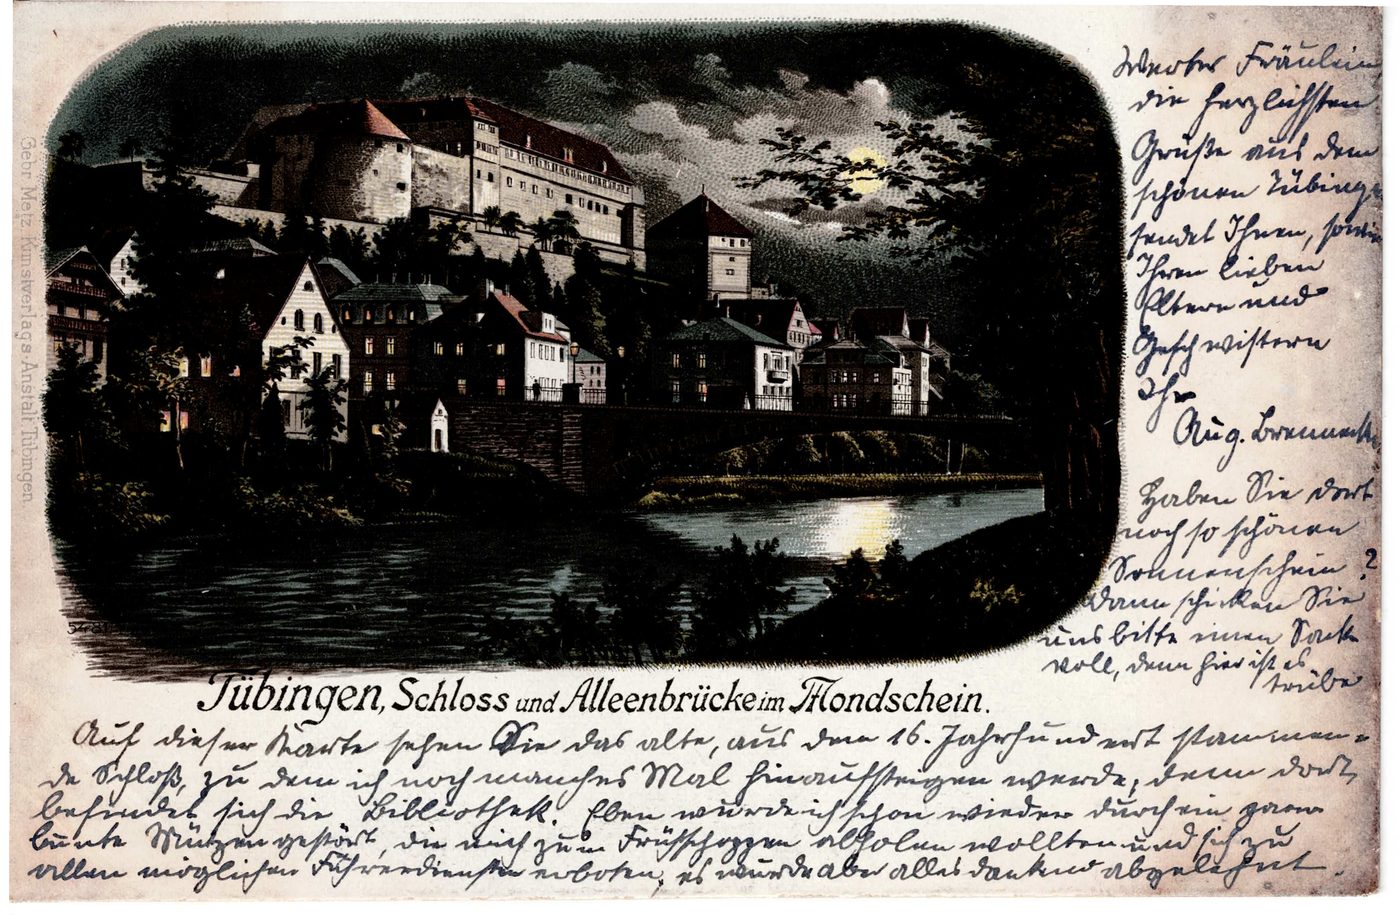 Werter Fräulein,
die herzlichsten
Grüße aus dem
schönen Tübingen
sendet Ihnen, sowie
Ihren lieben
Eltern und
Geschwistern
Ihr
Aug. Brennecke
Haben Sie dort
noch so schönen
Sonnenschein?
Dann schicken Sie
uns bitte einen Sack
voll, denn hier ist es
trübe
Gebr. Metz Kunstverlags-Anstalt Tübingen.
Tübingen, Schloss und Alleenbrücke im Mondschein.
Auf dieser Karte sehen Sie das alte, aus dem 16. Jahrhundert stammen-
de Schloß, zu dem ich noch manches Mal hinaufsteigen werde, denn dort
befindet sich die Bibliothek. Eben wurde ich schon wieder durch ein paar
bunte Mützen gestört, die mich zum Frühschoppen abholen wollten und sich zu
allen möglichen Führerdiensten erboten, es wurde aber alles dankend abgelehnt.